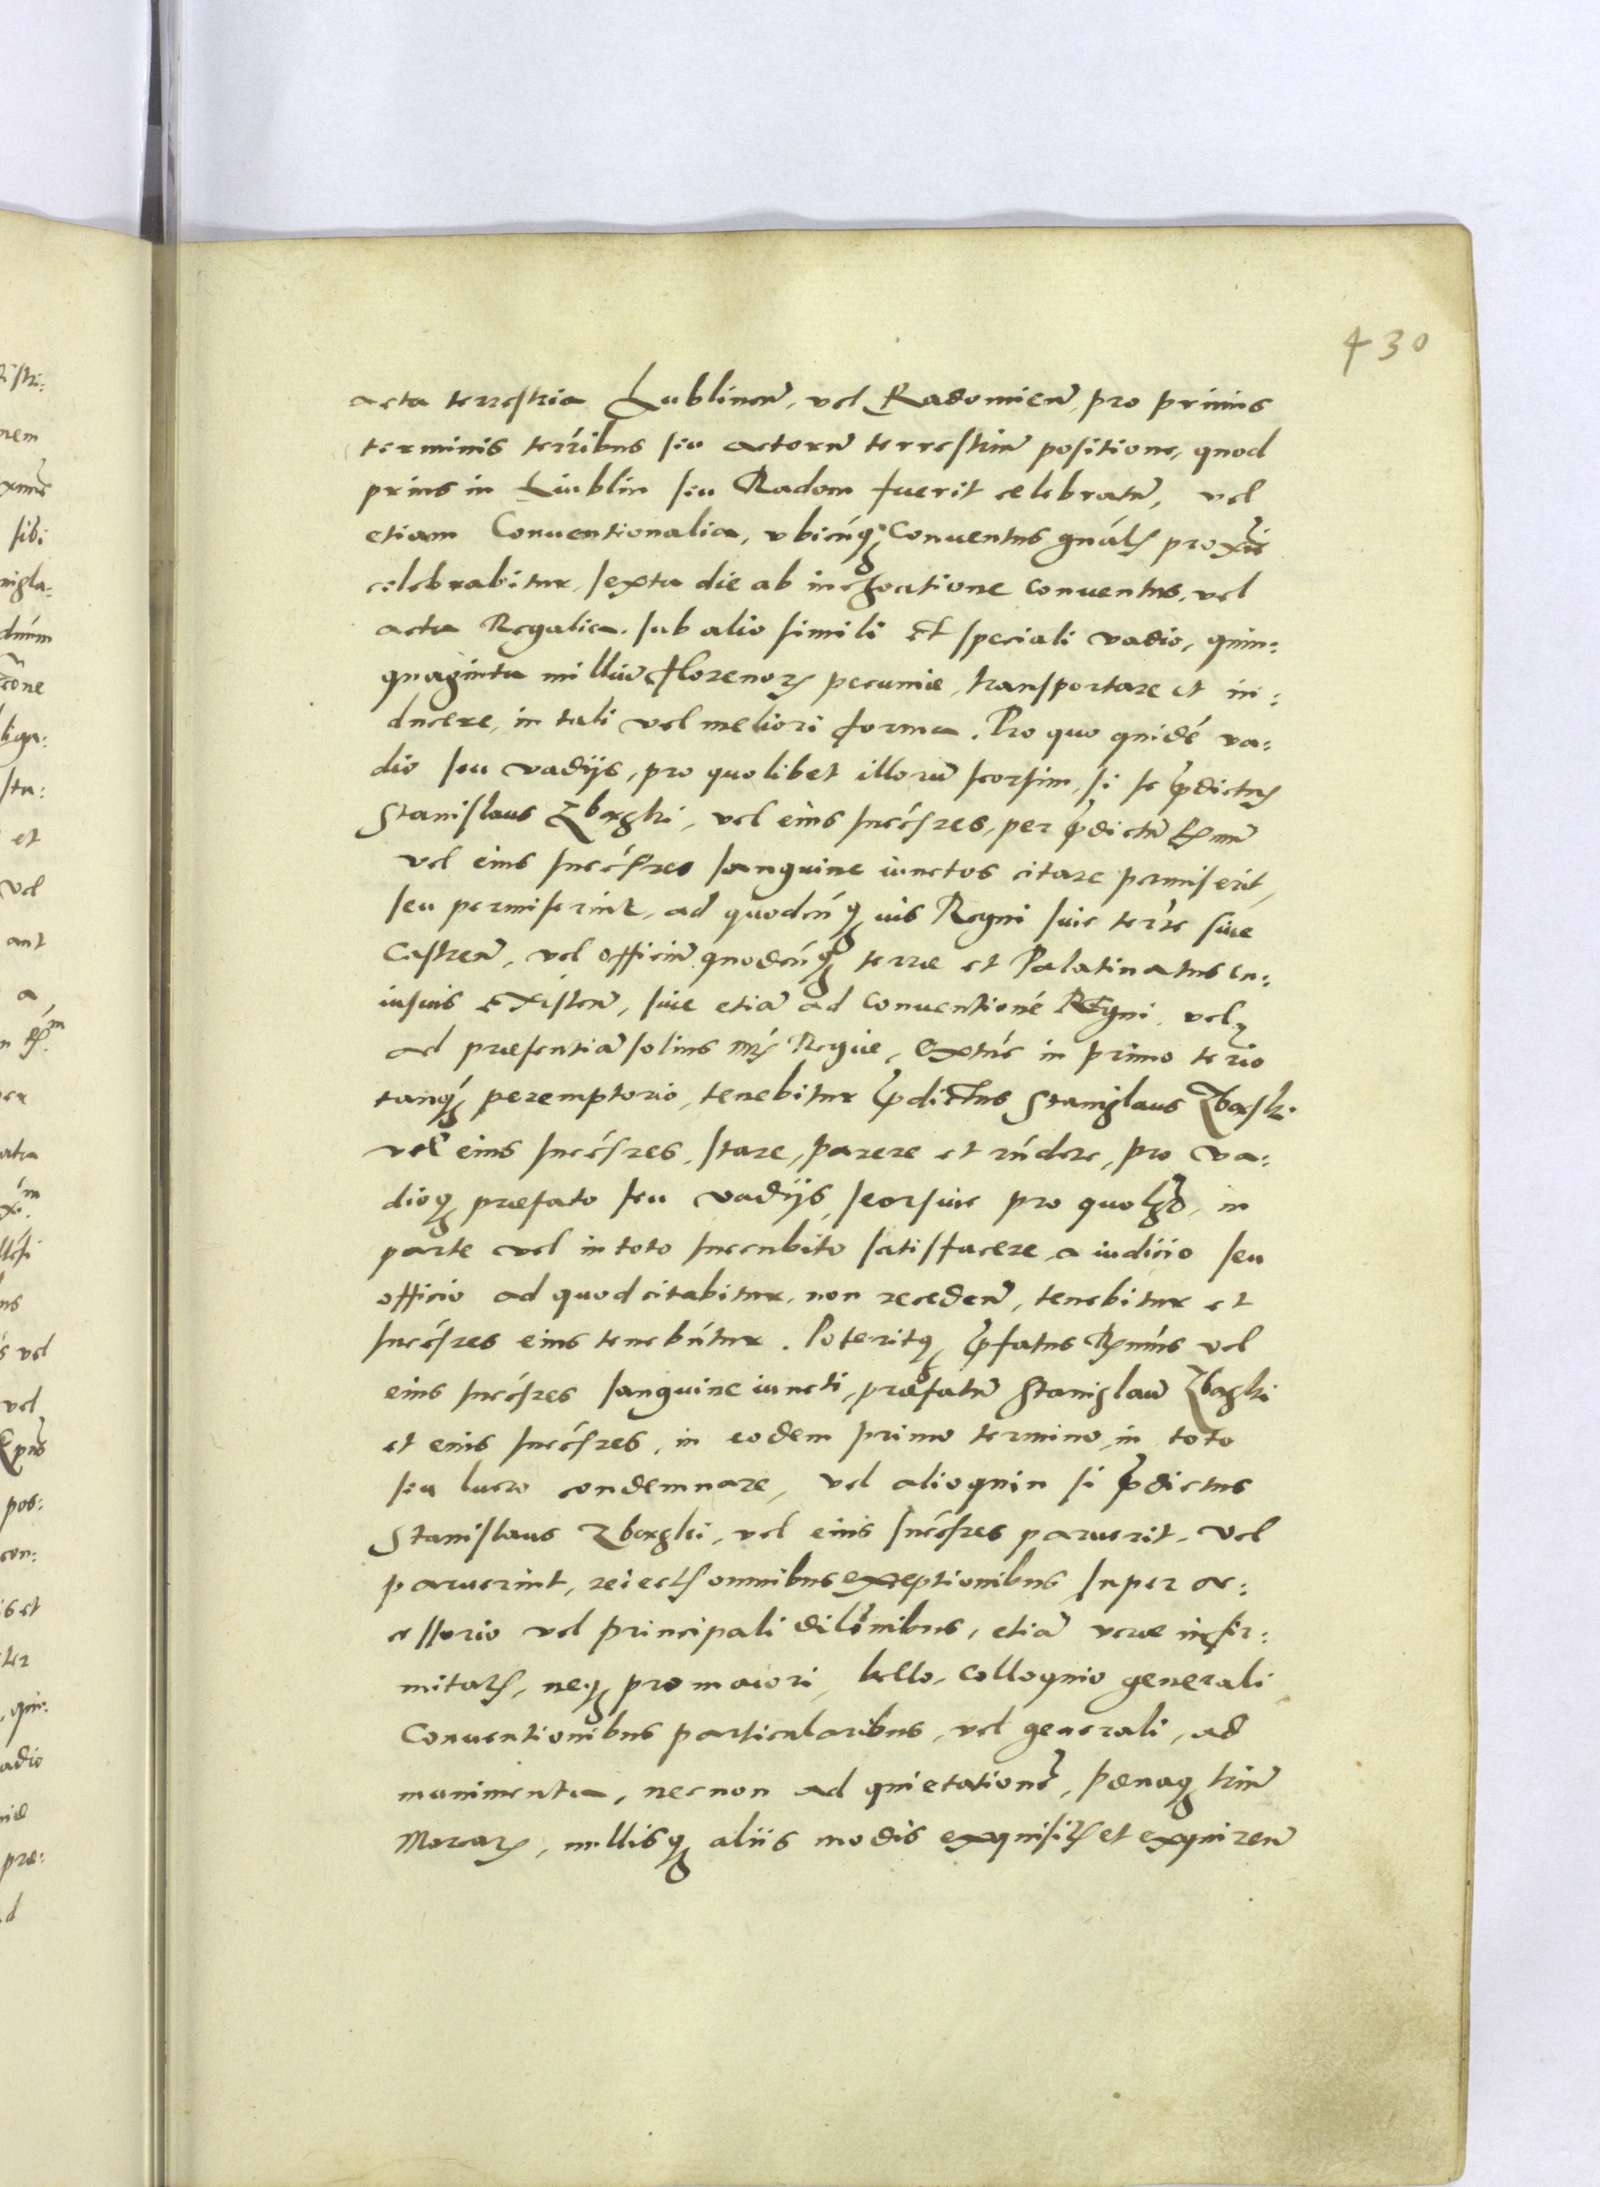 430
acta terrestria Lublinen̄, vel Radomien̄, pro primis
terminis terr̃ibus seu actorū terrestriū positione, quod
prius in Liublin seu Radom fuerit celebratū, vel
etiam Conventionalia, vbicūq; Conuentus gn̄alis proxīe
celebrabitur, sexta die ab inchoatione conuentus, vel
acta Regalia. sub alio simili et speciali vadio, quin:
quaginta milliū florenorꝫ pecuniæ, transportare et in:
ducere, in tali vel meliori forma. Pro quo quidē va:
dio seu vadijs, pro quolibet illorū seorsim, si se p̄dictus
Stanislaus Zbaski, vel eius succēsres, per p̄dictū Rm̄um
vel eius succēsres sanguine iunctos citare permiserit,
seu permiserint, ad quodcūq; ius Regni siue terr̃e siue
Castren̄, vel officiū quodcūq; terræ et Palatinatus cu:
iusuis existen̄, siue etiā ad conuentionē Regni, vel
ad præsentiā solius Mtis Regiæ, extūc in primo ter̃io
tanq̄; peremptorio, tenebitur p̄dictus Stanislaus Zbask.
vel eius succēsres, stare, parere et rñdere, pro va:
dioq; præfato seu vadijs, seorsiue pro quolꝫ, in
parte vel in toto succubito satisfacere, a iudicio seu
officio ad quod citabitur, non receden̄, tenebitur et
succēsres eius tenebūtur. Poteritq; p̄fatus Rm̄us vel
eius succēsres sanguine iuncti, præfatū Stanislaū Zbaski
et eius succēsres, in eodem primo termino, in toto
seu lucro condemnare, vel alioquin si p̄dictus
Stanislaus Zbaski, vel eius succēsres paruerit, vel
paruerint, reiectis omnibus exceptionibus super ac:
cessorio vel principali dilōnibus, etiā veræ infir:
mitatis, neq; pro maiori, bello, colloquio generali
Conuentionibus particularibus, vel generali, ad
munimenta, necnon ad quietationē, pænaq; triū
Marcarꝫ, nullisq; aliis modis exquisitis et exquiren̄